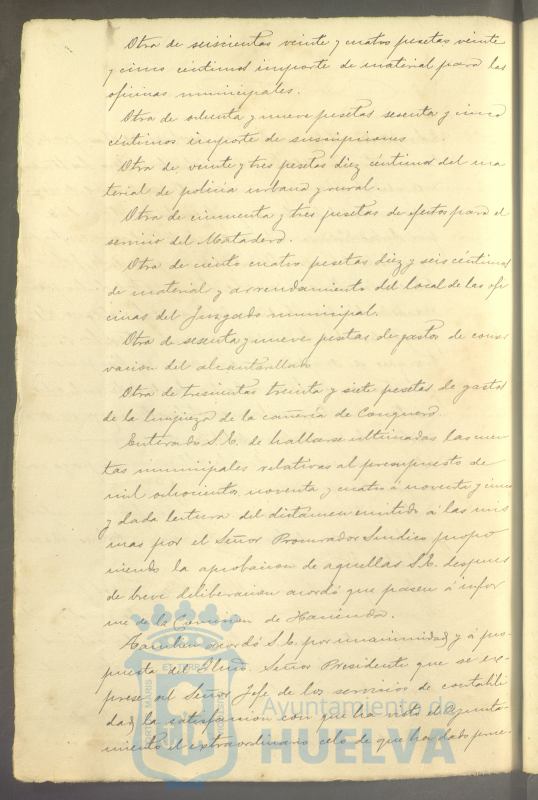 Otra de seiscientas veinte y cuatro pesetas veinte
y cinco céntimos importe de material para las
oficinas municipales.
Otra de ochenta y nueve pesetas sesenta y cinco
céntimos importe de suscripciones
Otra de veinte y tres pesetas diez céntimos del ma
terial de policia urbana y rural.
Otra de cincuenta y tres pesetas de efectos para el
servicio del Matadero.
Otra de ciento cuatro pesetas diez y seis céntimos
de material y arrendamiento del local de las ofi
cinas del Juzgado municipal.
Otra de sesenta y nueve pesetas de gastos de conser
vacion del alcantarillado
Otra de trescientas treinta y siete pesetas de gastos
de la limpieza de la cañeria de Conquero.
Enterado S.E. de hallarse ultimadas las cuen
tas municipales relativas al presupuesto de
mil ochocientos noventa y cuatro á noventa y cinco
y dada lectura del dictamen emitido á las mis
mas por el Señor Procurador Sindico propo
niendo la aprobacion de aquellas S.E. despues
de breve deliberacion acordó que pasen á infor
me de la Comision de Hacienda.
Tambien acordó S.E. por unanimidad y á pro
puesta del Señor Presidente que se ex-
prese al Señor Jefe de los servicios de contabili
dad la satisfaccion con que ha visto el Ayunta-
miento el extraordinario celo de que ha dado prue-
Ayuntamiento de
HUELVA